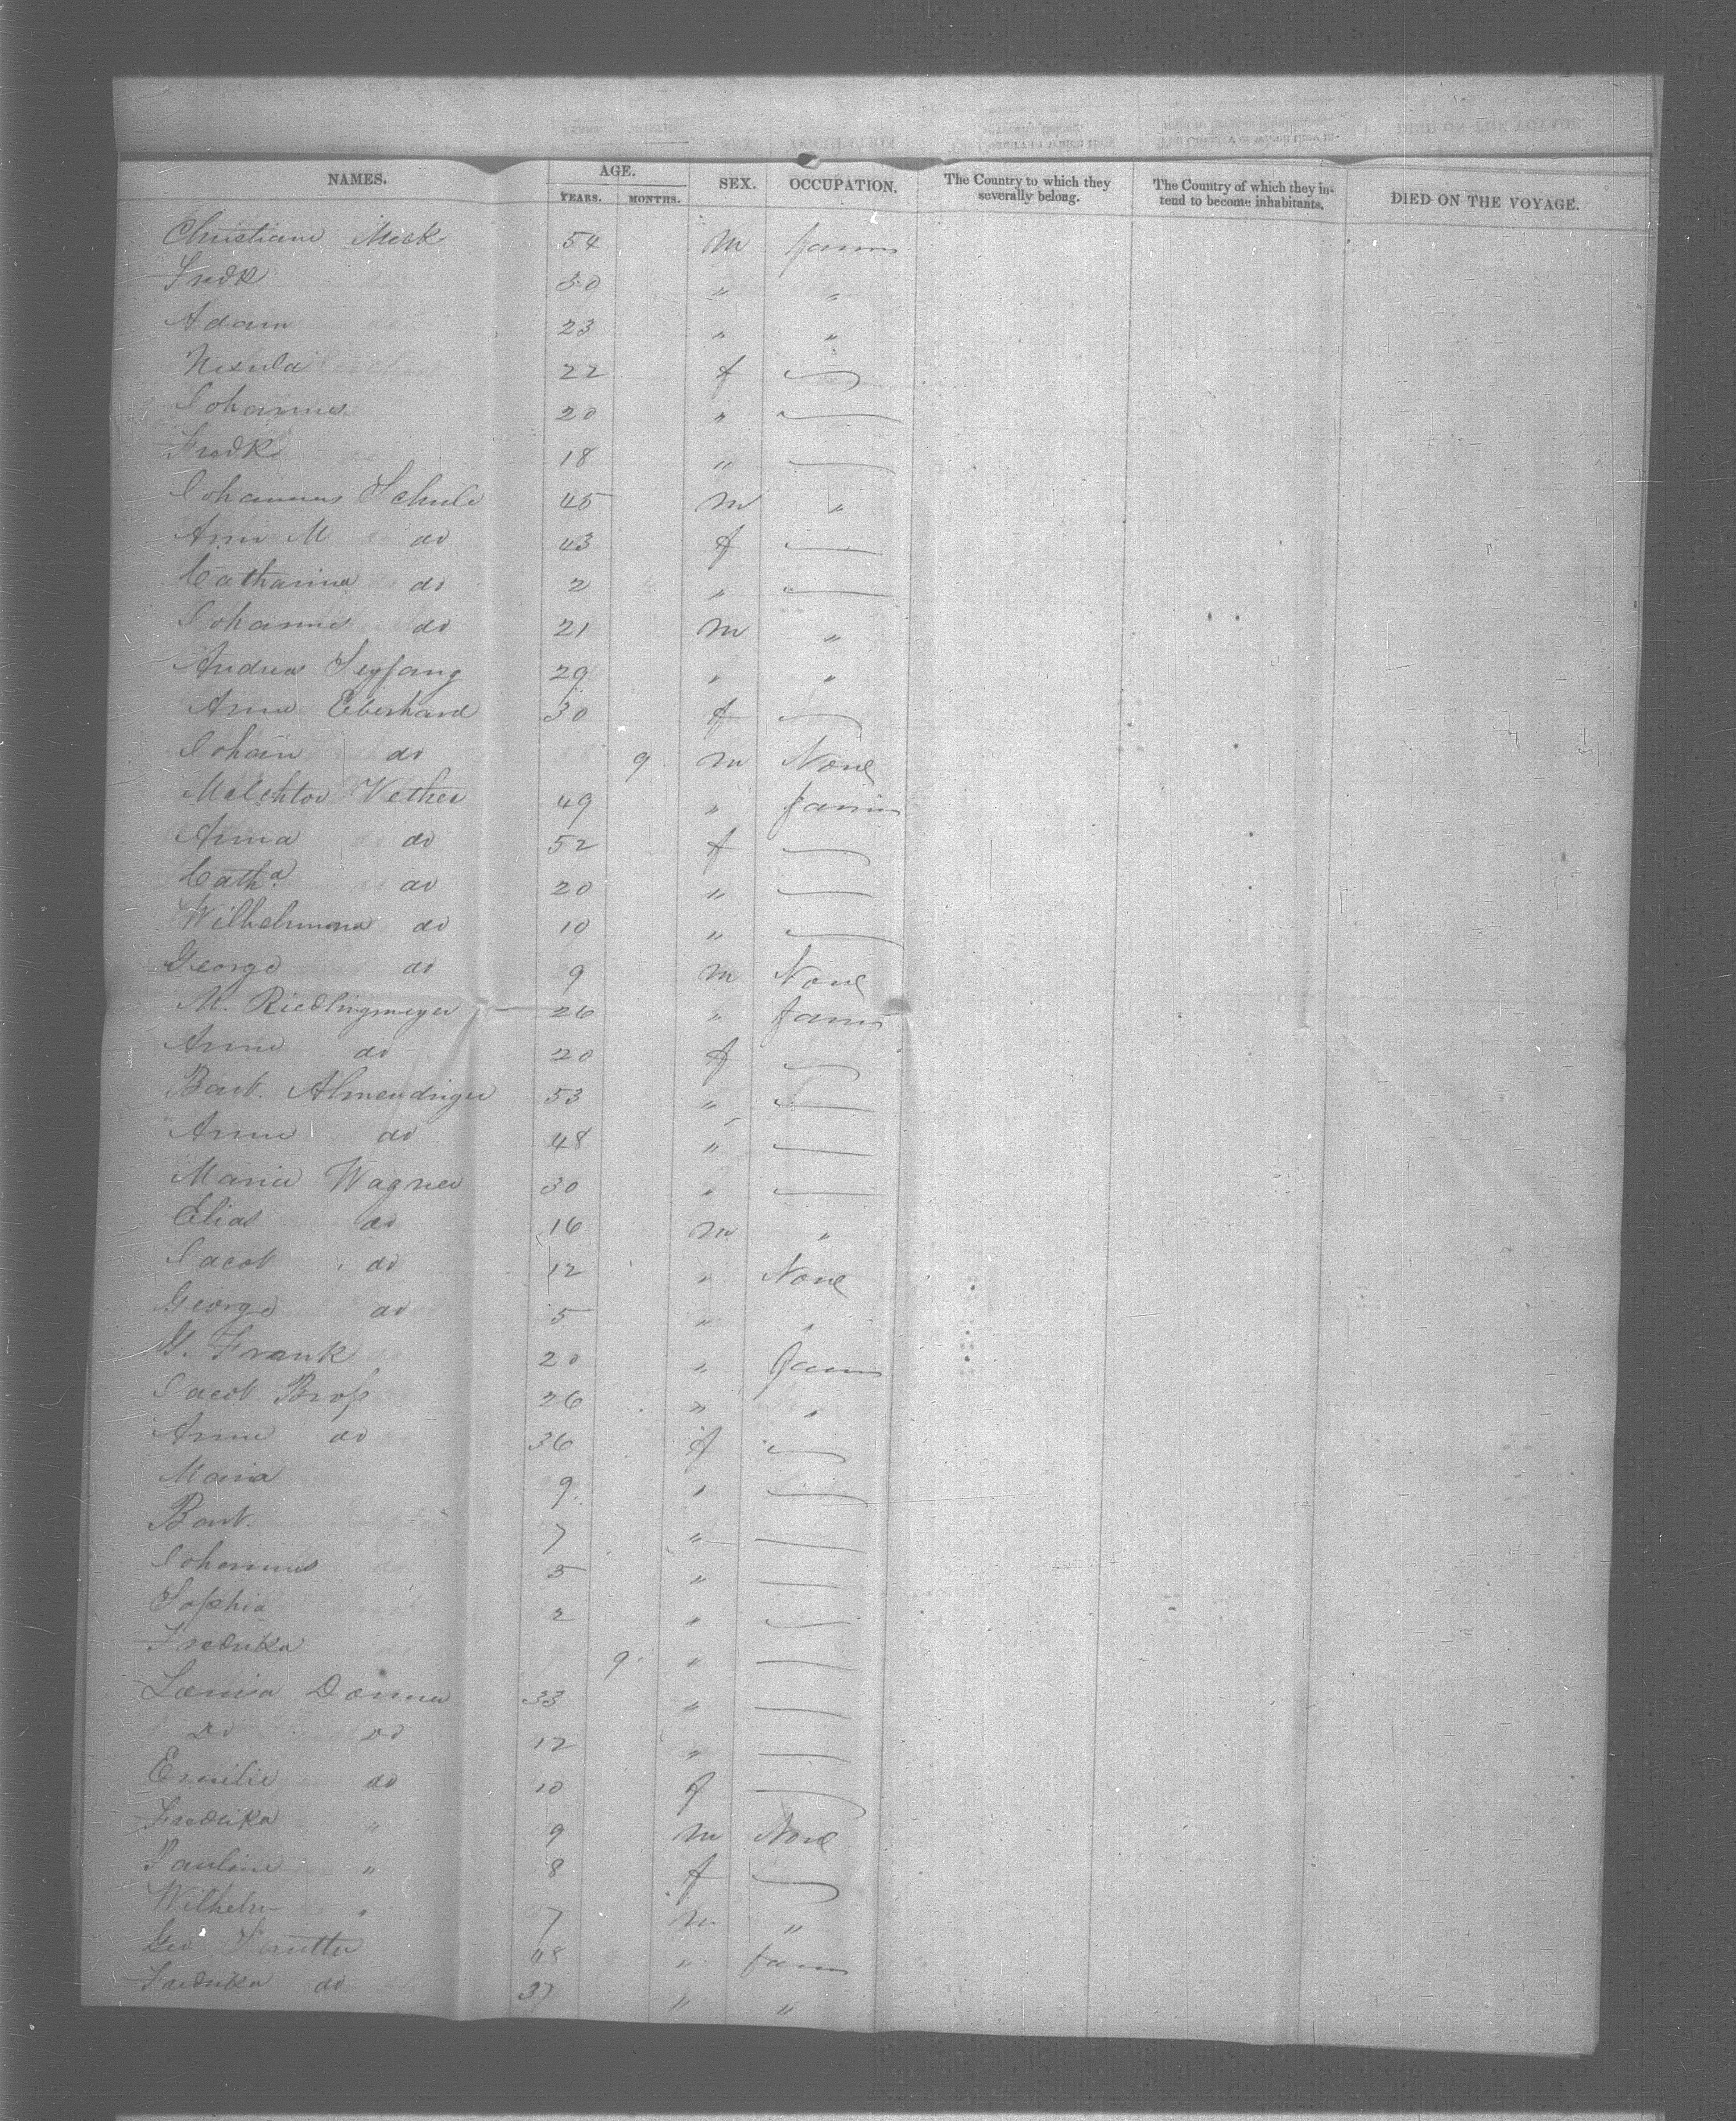 NAMES. AGE. SEX. OCCUPATION. The Country to which they severally belong. The Country of which they intend to become inhabitants. DIED ON THE VOYAGE.
YEARS. MONTHS.
Christian Meck 54 m farmer
Fredk 30 " "
Adam 23 " "
22 f
Johannes 20 "
Fredk 18 "
Johannes Schule 45 m "
Ann M do 43 f
Catharina do 2 "
Johannes do 21 m "
Andreas Seyfang 29 " "
Anna Eberhard 30 f
Johann do 9 m None
Melchior 49 " farmer
Anna do 52 f
Catha do 20 "
Wilhelmina do 10 "
George do 9 m None
M. Riedlingmeyer 26 " farmer
Anna do 20 f
Bart. Almendinger 53 "
Anna do 48 "
Maria Wagner 30 "
Elias do 16 m "
Jacob do 12 " None
George do 5 " "
G. Frank 20 " farmer
Jacob Bross 26 " "
Anna do 36 f
Maria 9 "
Bart. 7 "
Johannes 5 "
Sophia 2 "
Fredrika 9 "
Louisa 33 "
Do do 12 "
Emilie do 10 f
Fredrika " 9 m None
Pauline " 8 f
Wilhelm " 7 m "
Geo 48 " farmer
Fredrika do 37 " "